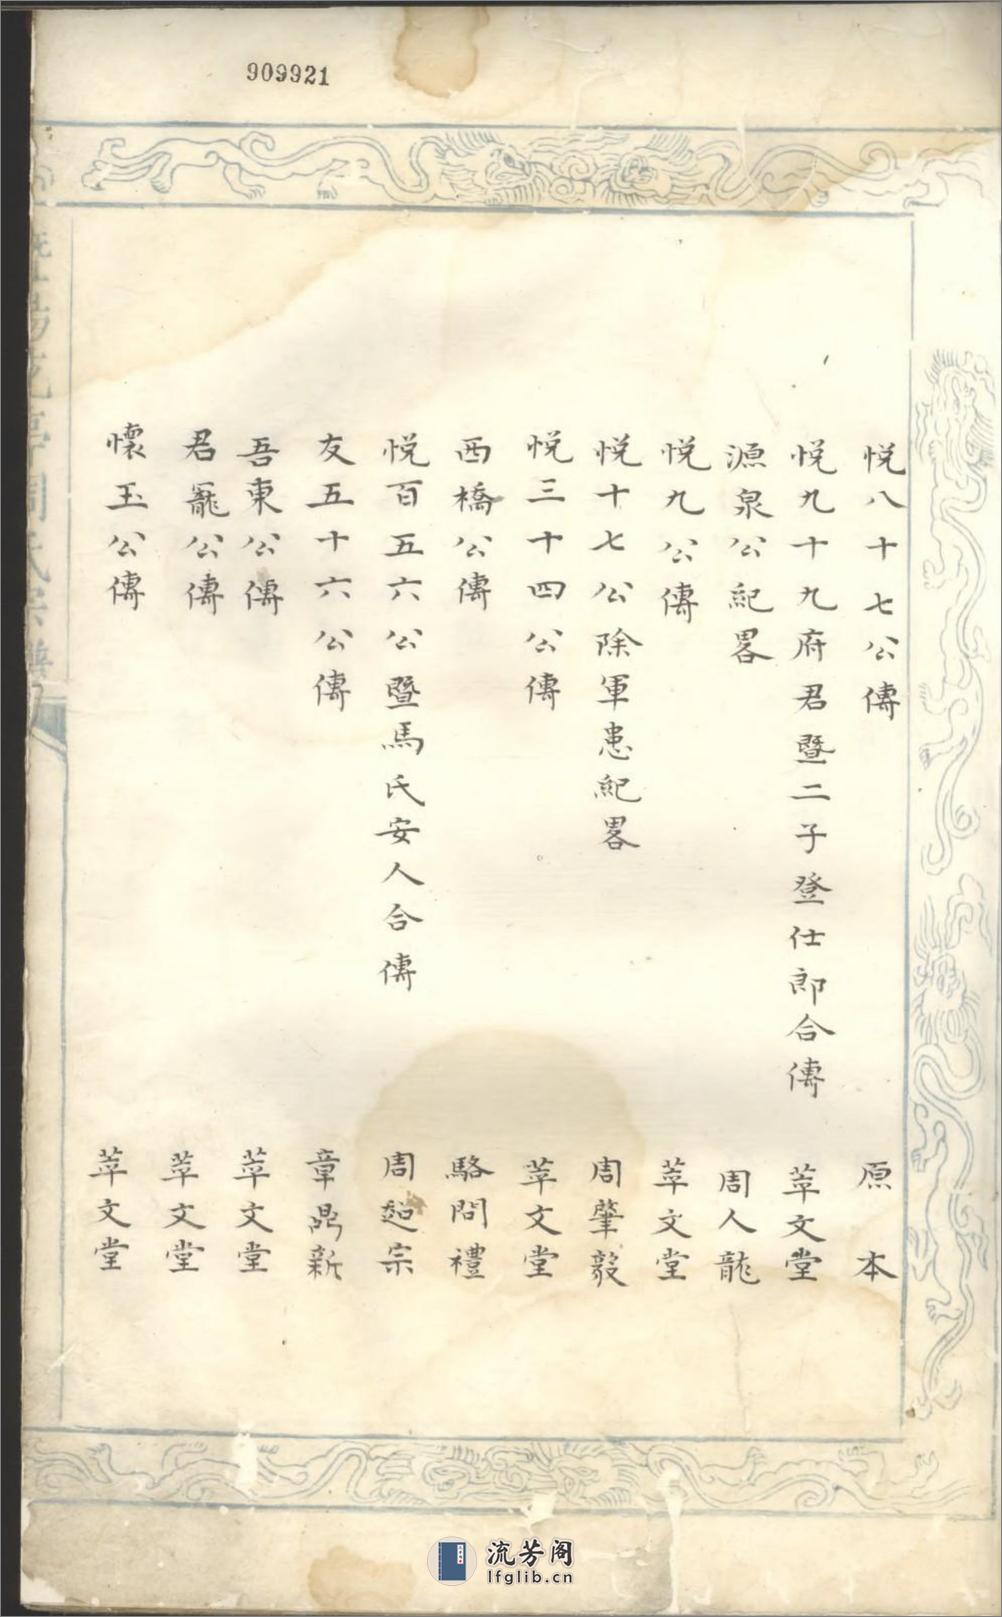 909921
悦八十七公傳 原本
悦九十九府君暨二子登仕郎合傳 萃文堂
源泉公紀畧 周人龍
悦九公傳 萃文堂
悦十七公除軍患紀畧 周肇毅
悦三十四公傳 萃文堂
西橋公傳 駱問禮
悦百五六公暨馬氏安人合傳 周超宗
友五十六公傳 章鼎新
吾東公傳 萃文堂
君寵公傳 萃文堂
懷玉公傳 萃文堂
周氏宗譜
流芳阁
lfglib.cn